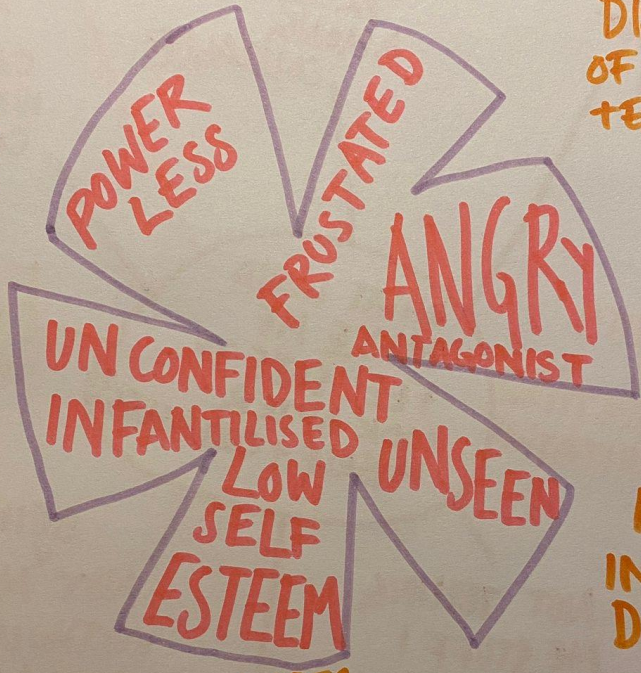 POWER
LESS
FRUSTATED
ANGRY
ANTAGONIST
UNCONFIDENT
INFANTILISED
UNSEEN
LOW
SELF
ESTEEM
OF
IN